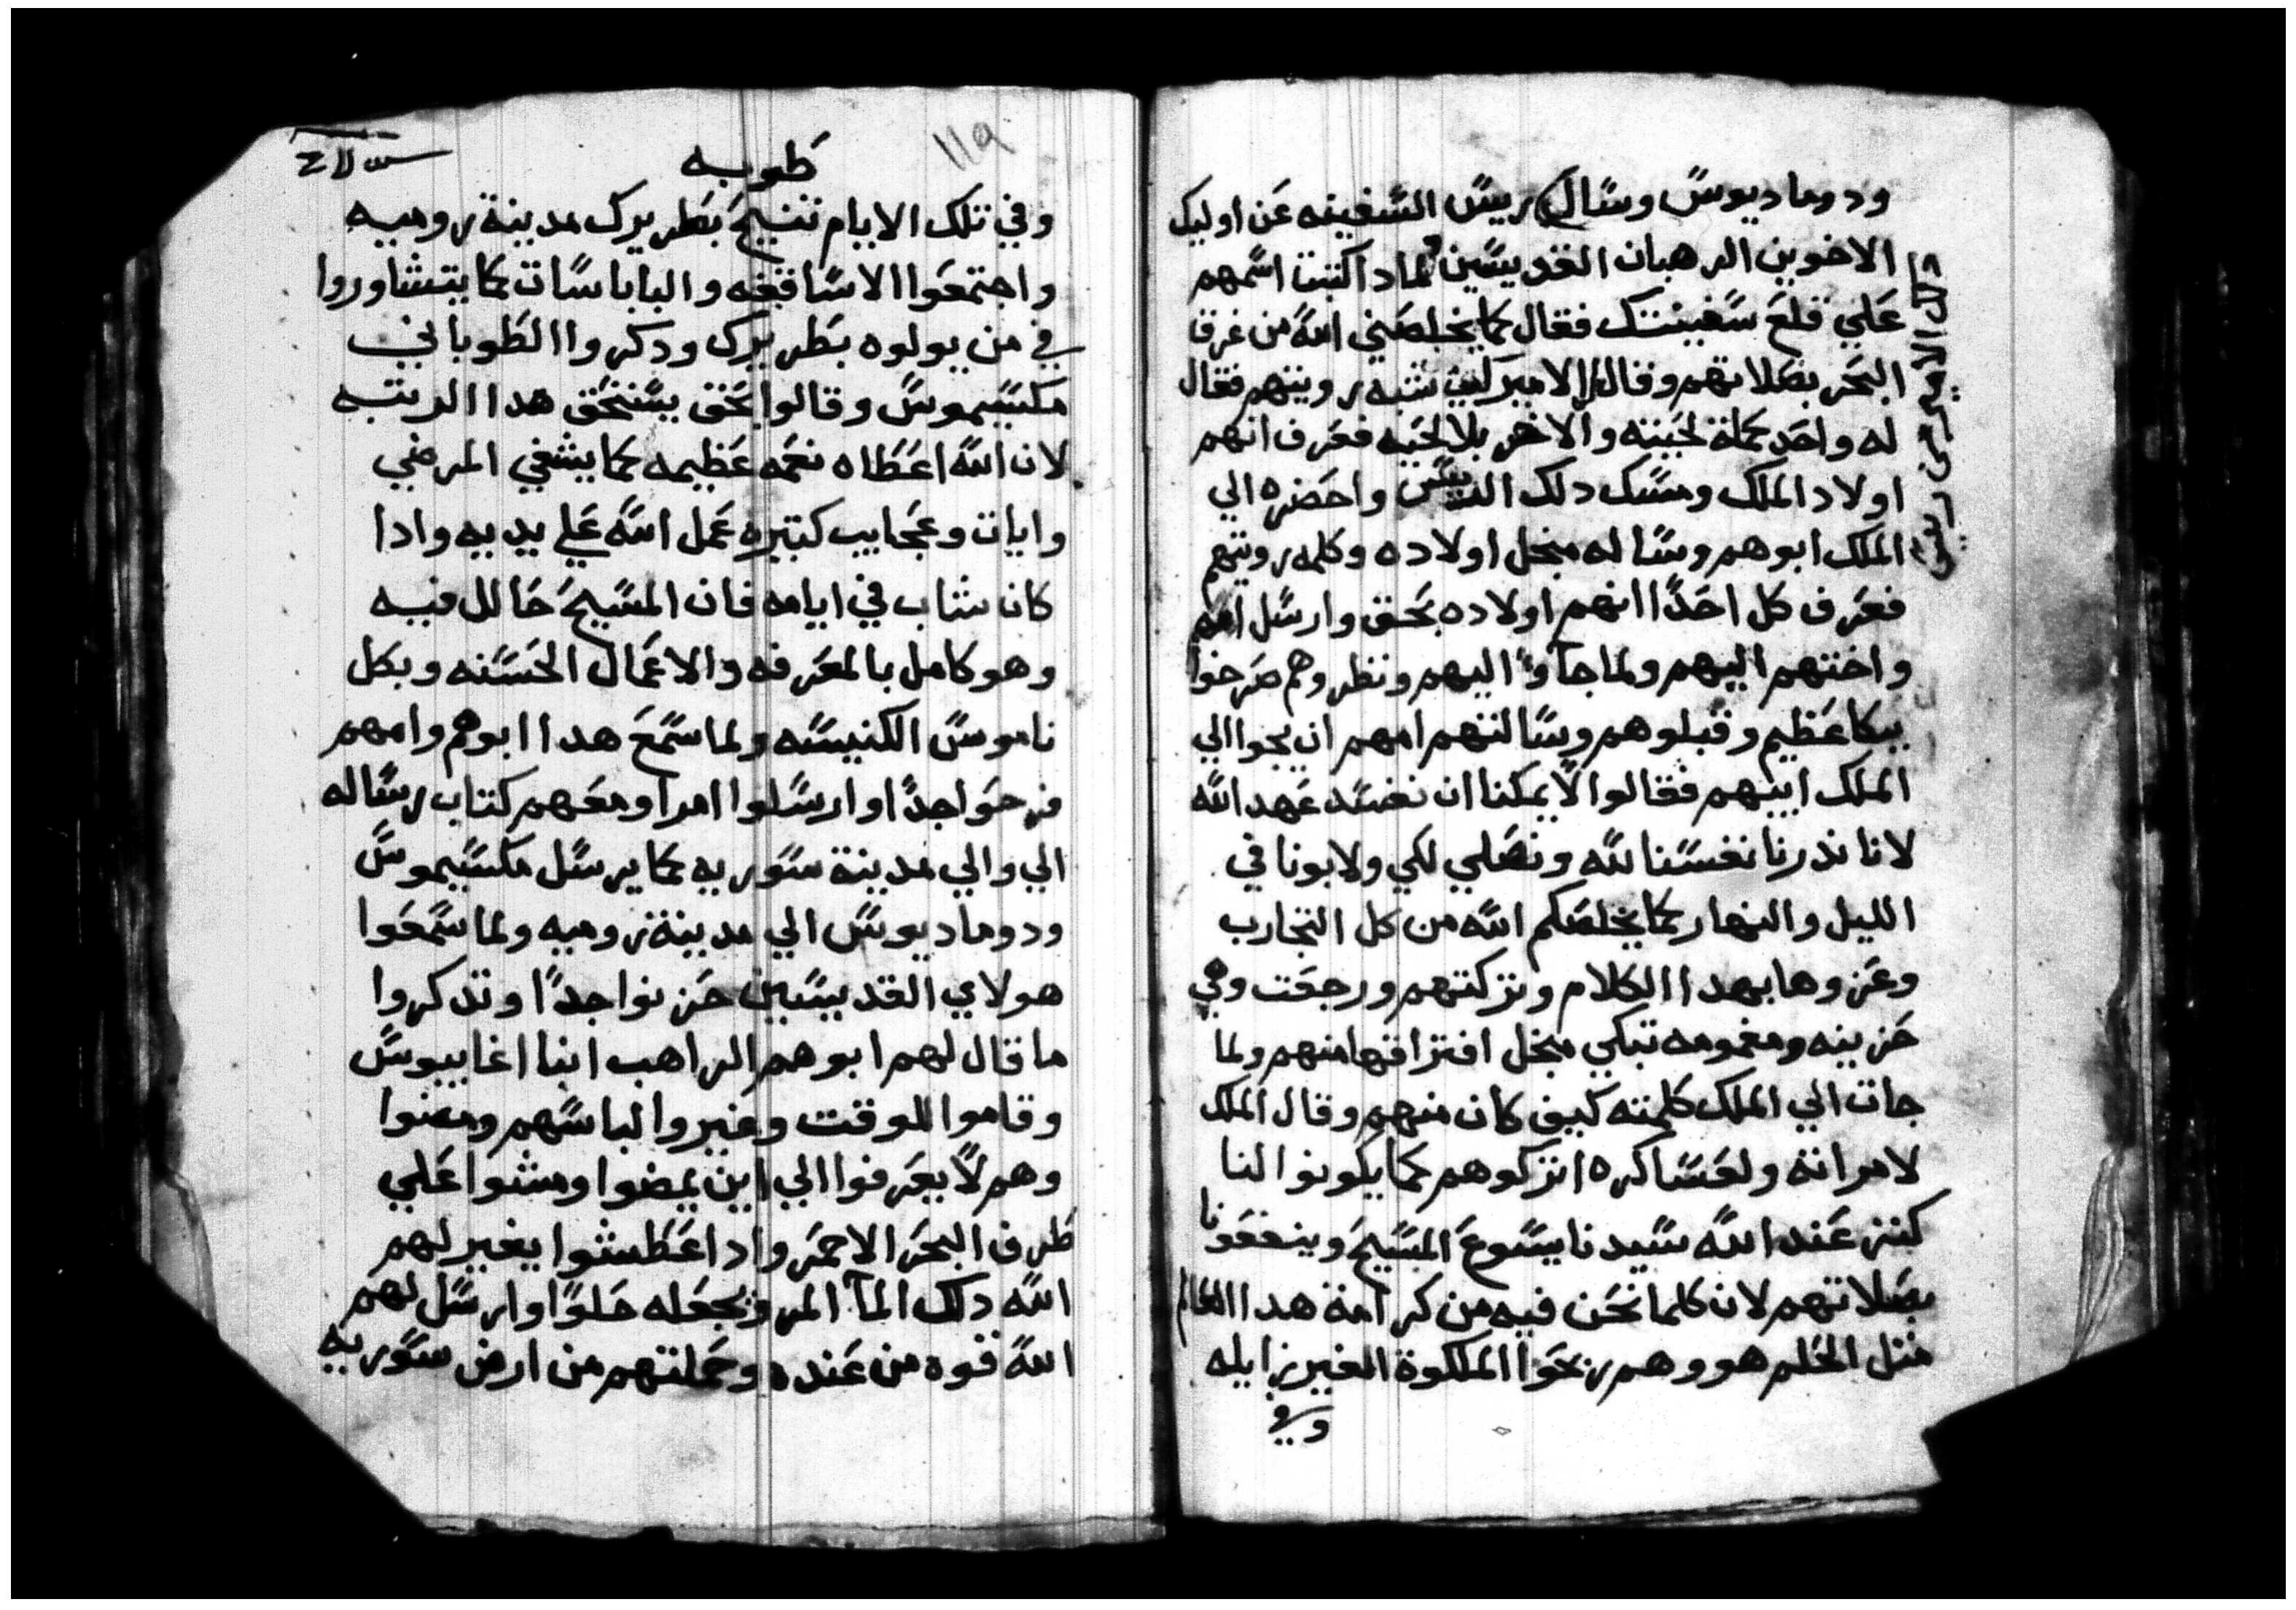 ودوماديوس وسال ريس السفينه عن اوليك
الاخوين الرهبان القديسين لمادا كتبت اسمهم
علي قلع سفينتك فقال كما يخلصني الله من غرق
البحر بصلاتهم وقال الامير شبه رويتهم فقال
له واحد كملة لحيته والاخر بلا لحيه فعرف انهم
اولاد الملك ومسك دلك الريس واحضره الي
الملك ابوهم وساله منجل اولاده وكلمه رويتهم
فعرف كل احدا انهم اولاده بحق وارسل امهم
واختهم اليهم ولما جآوا اليهم ونظروهم صرخوا
ببكا عظيم وقبلوهم وسالتهم امهم ان يجوا الي
الملك ابيهم فقالوا لا يمكننا ان نفسد عهد الله
لانا نذرنا نفسنا لله ونصلي لكي ولابونا في
الليل والنهار كما يخلصكم الله من كل التجارب
وعزوها بهدا الكلام وتركتهم ورجعت وهي
حزينه ومغمومه تبكي منجل افتراقها منهم ولما
جات الي الملك كلمته كيف كان منهم وقال الملك
لامراته ولعساكره اتركوهم كما يكونوا لنا
كنز عند الله سيدنا يسوع المسيح وينفعونا
بصلاتهم لان كلما نحن فيه من كرامة هدا العالم
مثل الحلم هو وهم ربحوا الملكوة الغير زايله
وفي
قال الامير
طوبه
١١٩
وفي تلك الايام تنيح بطريرك مدينة روميه
واجتمعوا الاساقفه والباباسات كما يتشاوروا
في من يولوه بطريرك ودكروا الطوباني
مكسيموس وقالوا بحق يستحق هدا الرتبه
لان الله اعطاه نعمه عظيمه كما يشفي المرضي
وايات وعجايب كتيره عمل الله علي يديه وادا
كان شاب في ايامه فان المسيح حالل فيه
وهو كامل بالمعرفه والاعمال الحسنه وبكل
ناموس الكنيسه ولما سمع هدا ابوهم وامهم
فرحوا جدا وارسلوا امرا ومعهم كتاب رساله
الي والي مدينة سوريه كما يرسل مكسيموس
ودوماديوس الي مدينة روميه ولما سمعوا
هولاي القديسين حزنوا جدا وتدكروا
ما قال لهم ابوهم الراهب انبا اغابيوس
وقاموا للوقت وغيروا لباسهم ومضوا
وهم لا يعرفوا الي اين يمضوا ومشوا علي
طرف البحر الاحمر وادا عطشوا يغير لهم
الله دلك المآ المر ويجعله حلوا وارسل لهم
الله قوه من عنده وحملتهم من ارض سوريه